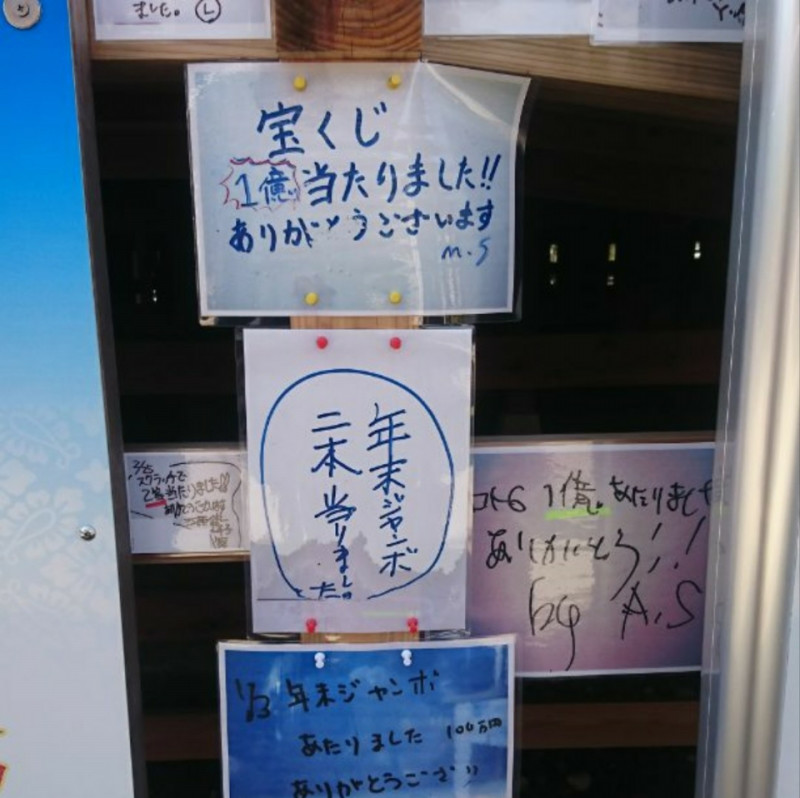 ました。 L
宝くじ
1億 当たりました!!
ありがとうございます
M.S
年末ジャンボ
二本当りました。
スクラッチで
2等当たりました!!
ロト6 1億。あたりました
ありがとう!!
by A.S
1/23 年末ジャンボ
あたりました 100万円
ありがとうござい